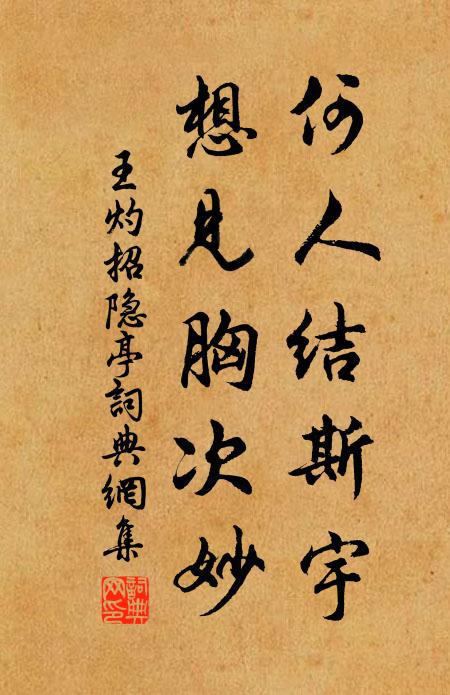 何人结斯宇
想见胸次妙
王灼招隐亭詞典網集
詞典网印